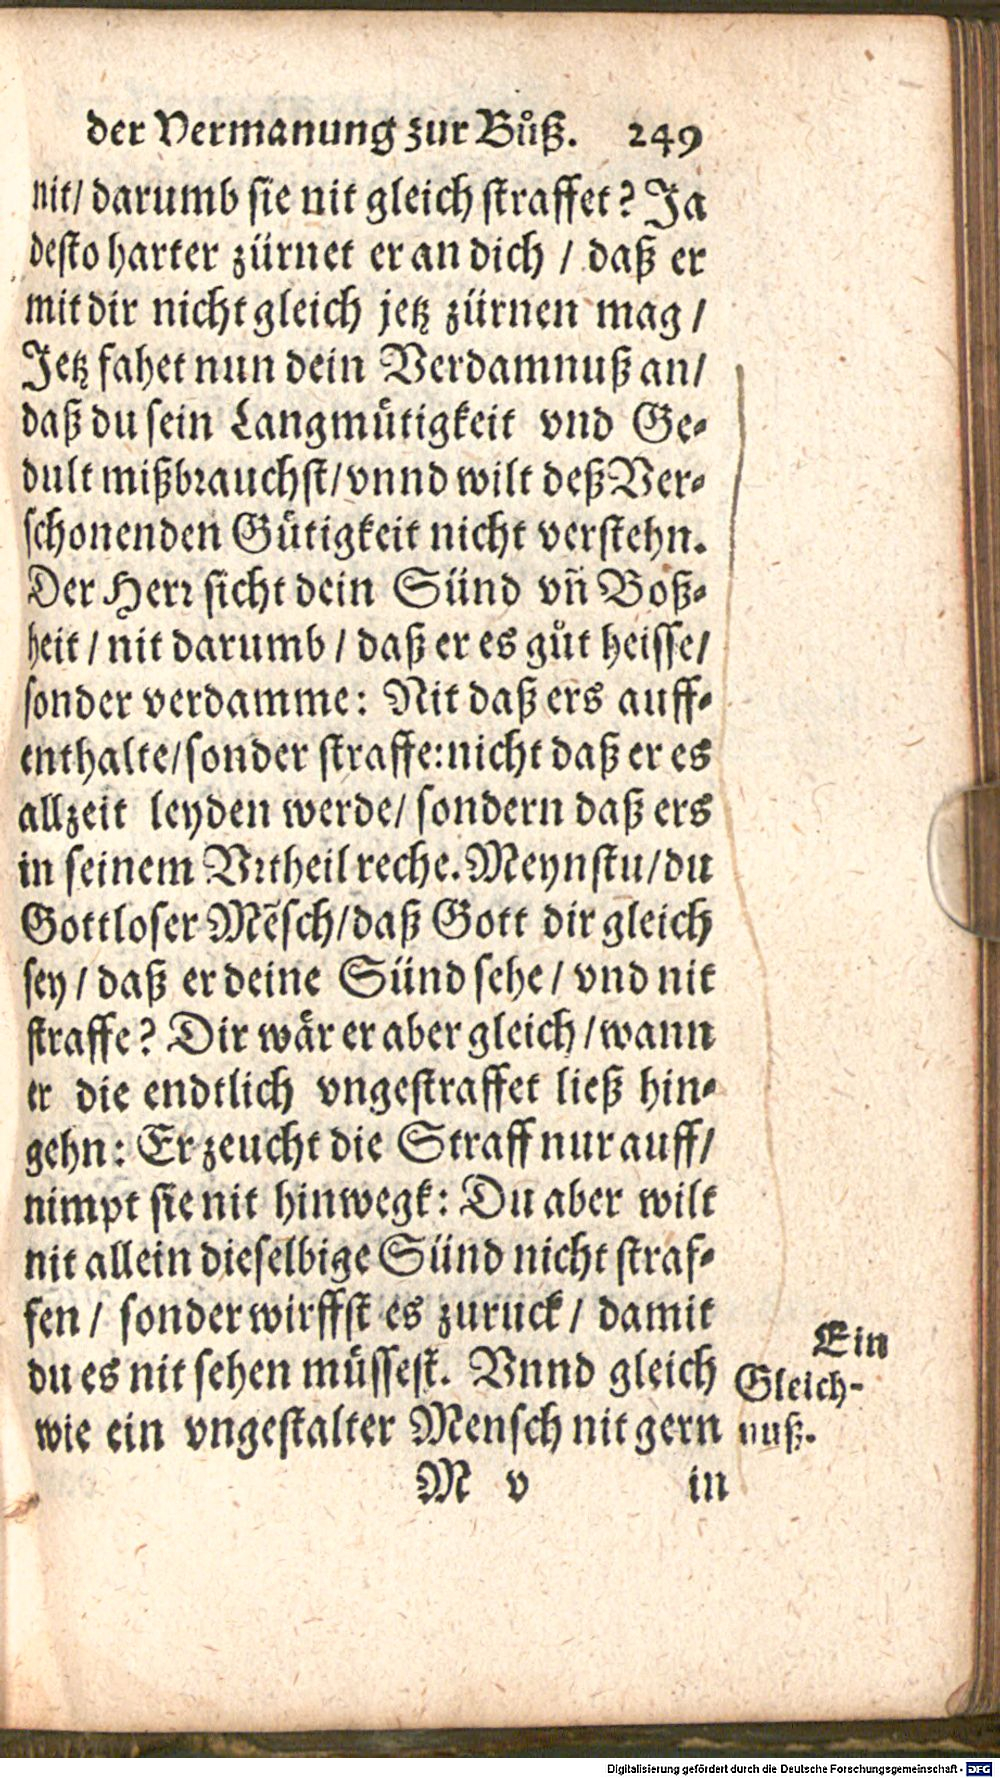 der Vermanung zur Bůß. 249
nit/ darumb sie nit gleich straffet? Ja
desto harter zürnet er an dich / daß er
mit dir nicht gleich jetz zürnen mag /
Jetz fahet nun dein Verdamnuß an/
daß du sein Langmütigkeit vnd Ge-
dult mißbrauchst/ vnnd wilt deß Ver-
schonenden Gütigkeit nicht verstehn.
Der Herr sicht dein Sünd vn̄ Boß-
heit / nit darumb / daß er es gůt heisse/
sonder verdamme: Nit daß ers auff-
enthalte/ sonder straffe: nicht daß er es
allzeit leyden werde/ sondern daß ers
in seinem Vrtheil reche. Meynstu/ du
Gottloser Mẽsch/ daß Gott dir gleich
sey / daß er deine Sünd sehe / vnd nit
straffe? Dir wär er aber gleich / wann
er die endtlich vngestraffet ließ hin-
gehn: Er zeucht die Straff nur auff/
nimpt sie nit hinwegk: Du aber wilt
nit allein dieselbige Sünd nicht straf-
fen / sonder wirffst es zuruck / damit
du es nit sehen müssest. Vnnd gleich
wie ein vngestalter Mensch nit gern
Ein
Gleich-
nuß.
M v in
Digitalisierung gefördert durch die Deutsche Forschungsgemeinschaft - DFG